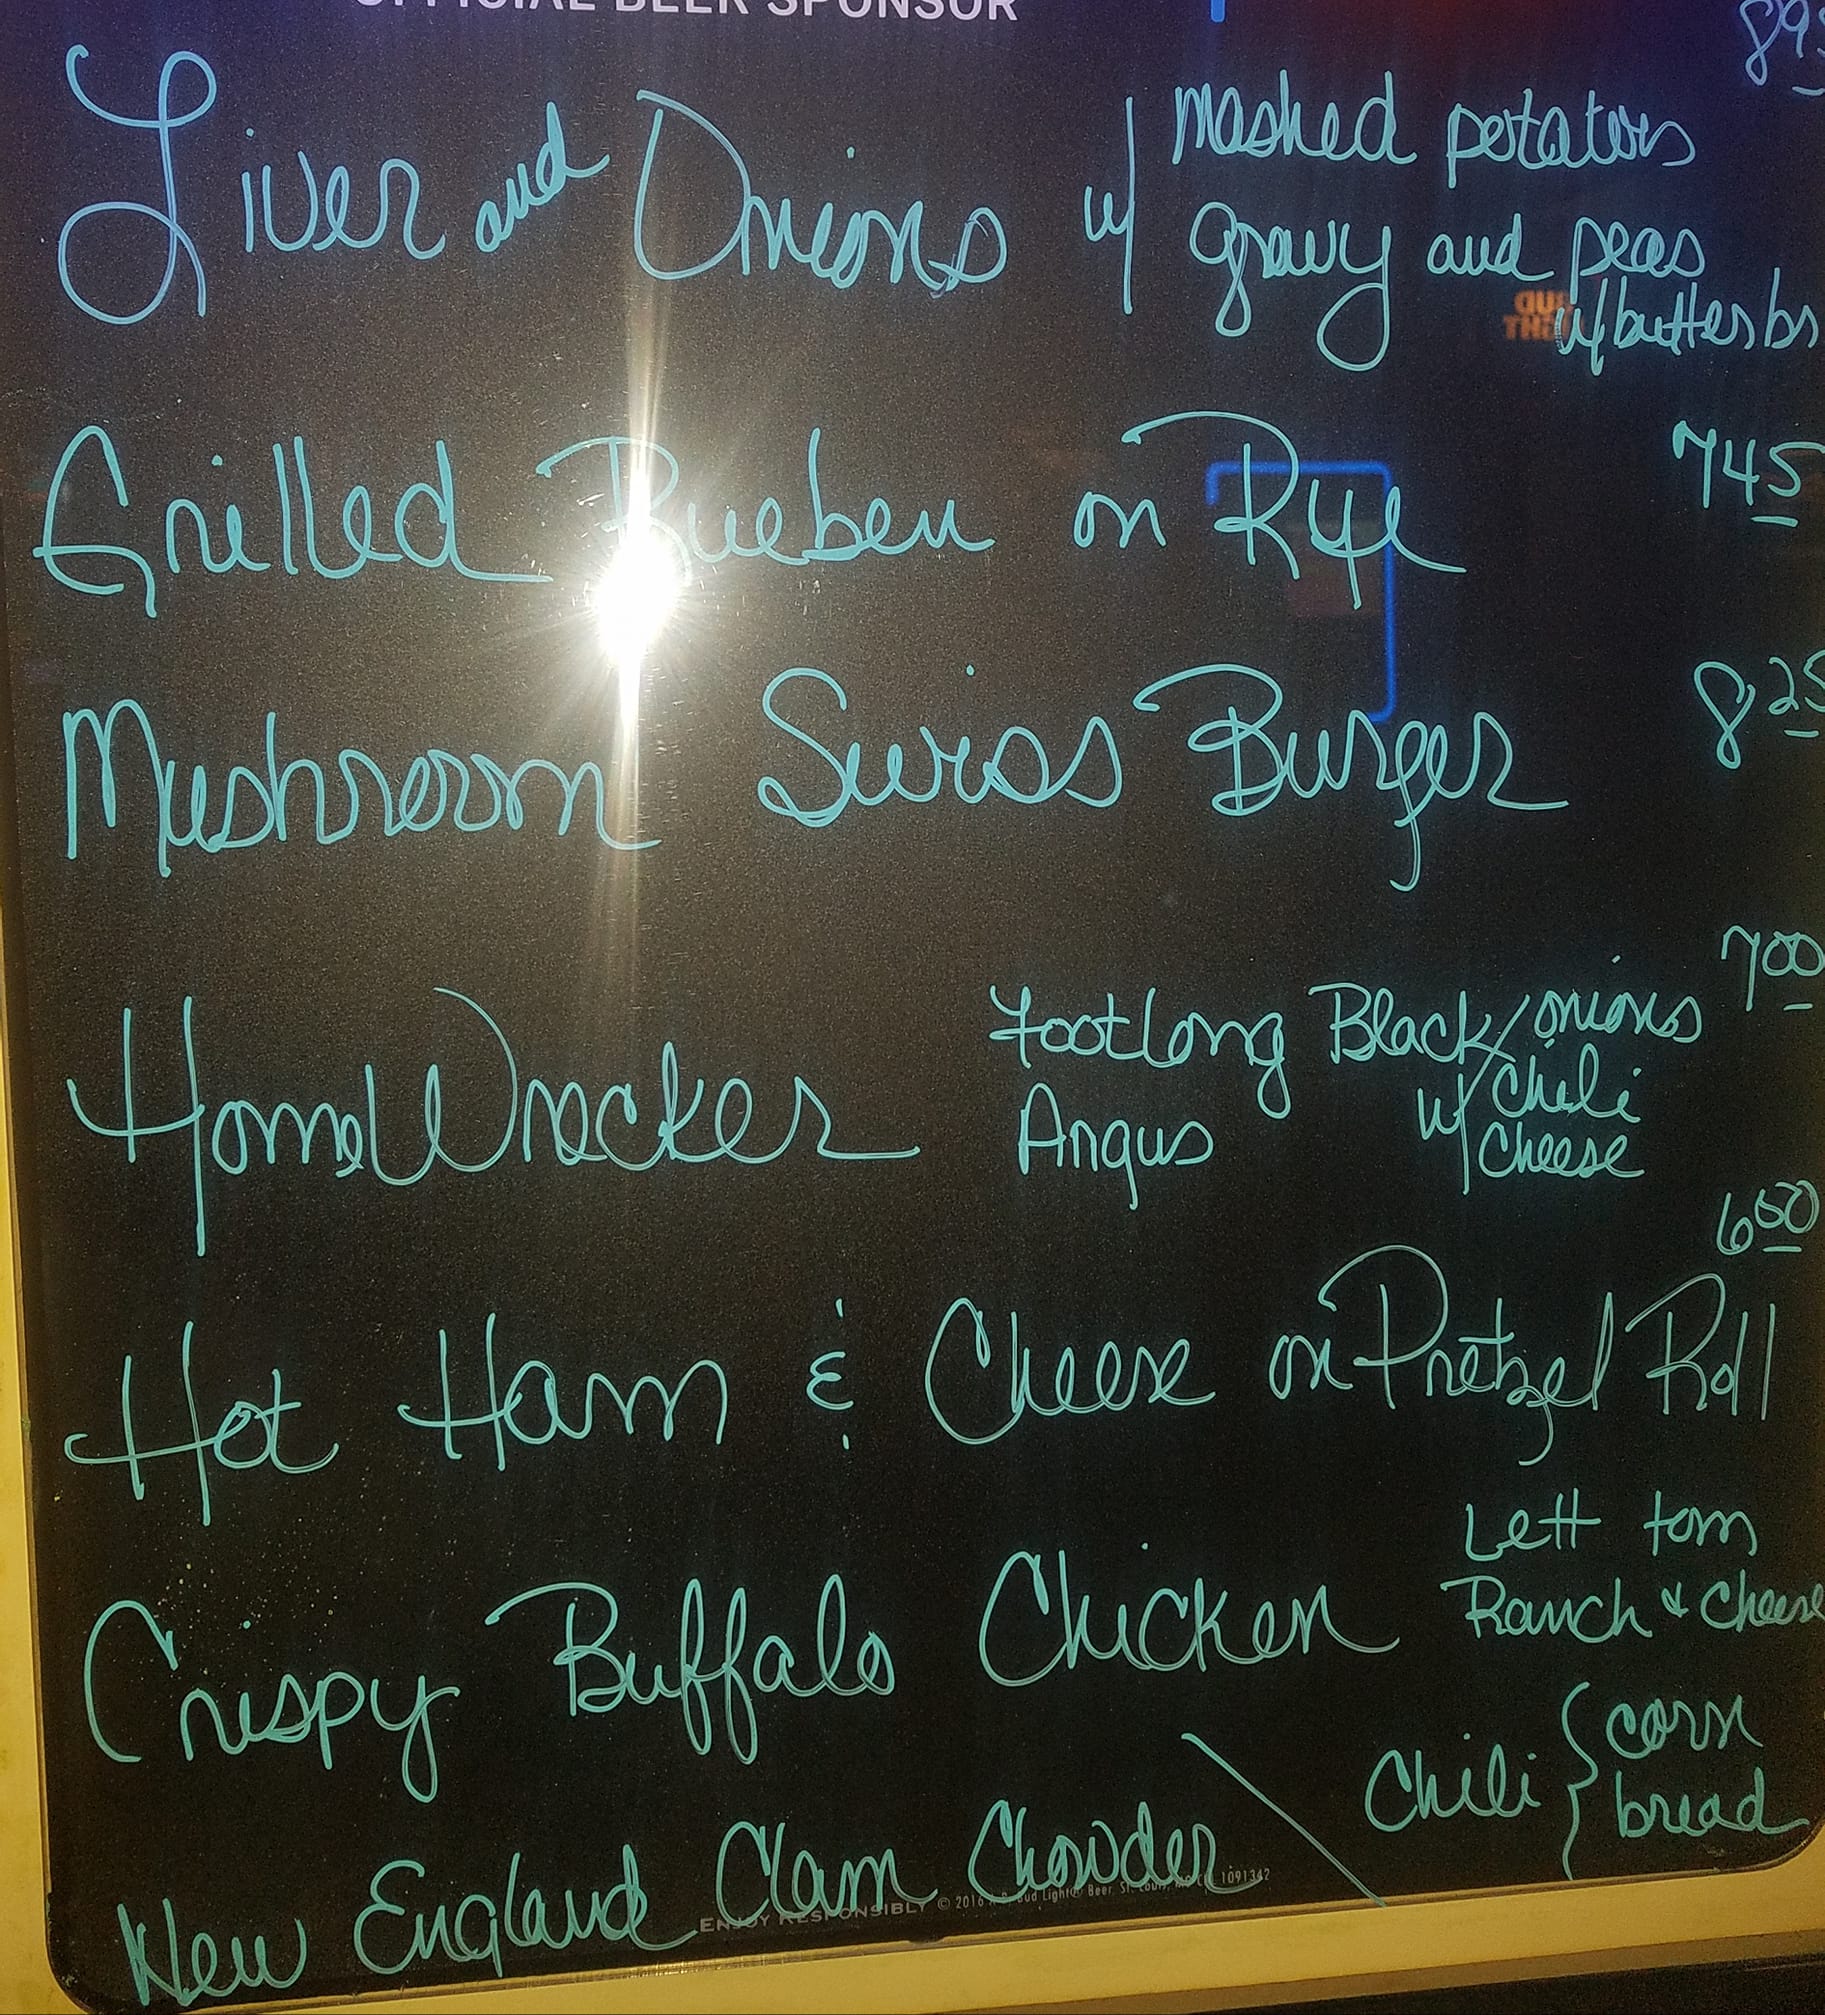 OFFICIAL BEER SPONSOR
Liver and Onions w/ mashed potatoes
gravy and peas
w/butter bs
Grilled Rueben on Rye 745
Mushroom Swiss Burger 825
700
HomeWrecker Footlong Black Angus w/ onions
chili
cheese
650
Hot Ham & Cheese on Pretzel Roll
Crispy Buffalo Chicken Lett tom
Ranch & Cheese
New England Clam Chowder \ Chili { corn
bread
ENJOY RESPONSIBLY © 2016 Bud Light® Beer, St. Louis, 1091342